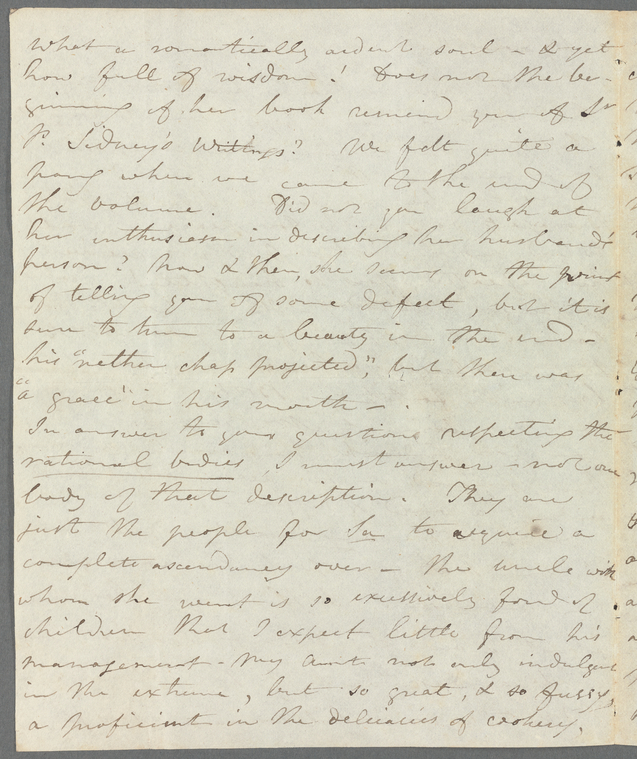 what a romantically ardent soul - & yet
how full of wisdom! Does not the be-
ginning of her book remind you of Sr
P. Sidney's Writings? We felt quite a
pang when we came to the end of
the volume. Did not you laugh at
her enthusiasm in describing her husband's
person? now & then, she seems on the point
of telling you of some defect, but it is
sure to turn to a beauty in the end -
his "nether chap projected", but then was
"a grace" in his mouth - .
In answer to your questions respecting the
rational bodies, I must answer - not one
body of that description. They are
just the people for Sa to acquire a
complete ascendancy over - the uncle with
whom she went is so excessively fond of
children that I expect little from his
management - My Aunt not only indulgent
in the extreme, but so great, & so fussy
a proficient in the delicacies of cookery,